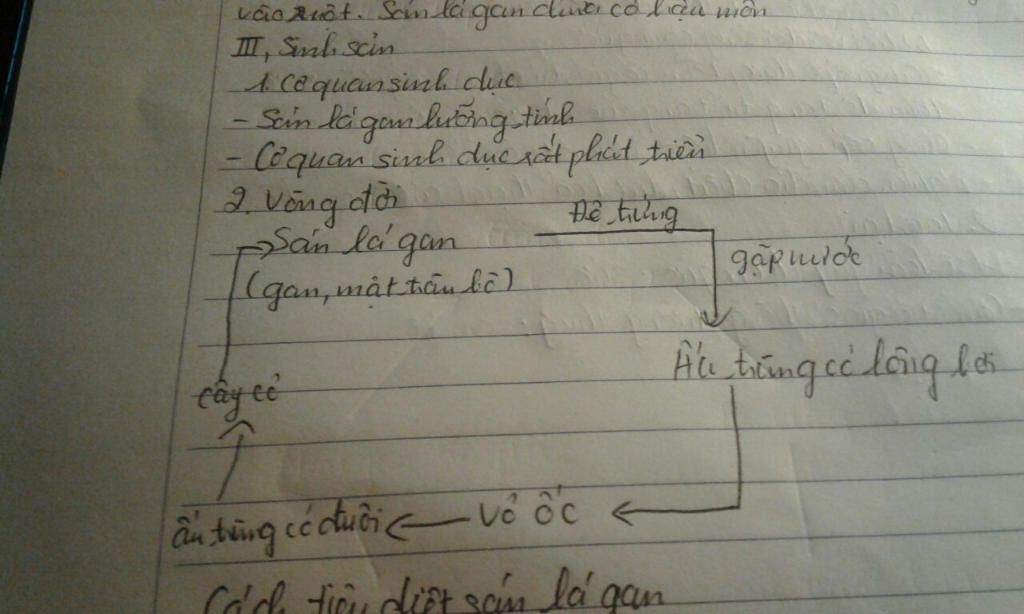 vào ruột. Sán lá gan chưa có hậu môn
III, Sinh sản
1. Cơ quan sinh dục
- Sán lá gan lưỡng tính
- Cơ quan sinh dục rất phát triển
2. Vòng đời
Đẻ trứng
Sán lá gan
gặp nước
(gan, mật trâu bò)
Ấu trùng có lông bơi
cây cỏ
ấu trùng có đuôi
Vỏ ốc
Cách tiêu diệt sán lá gan